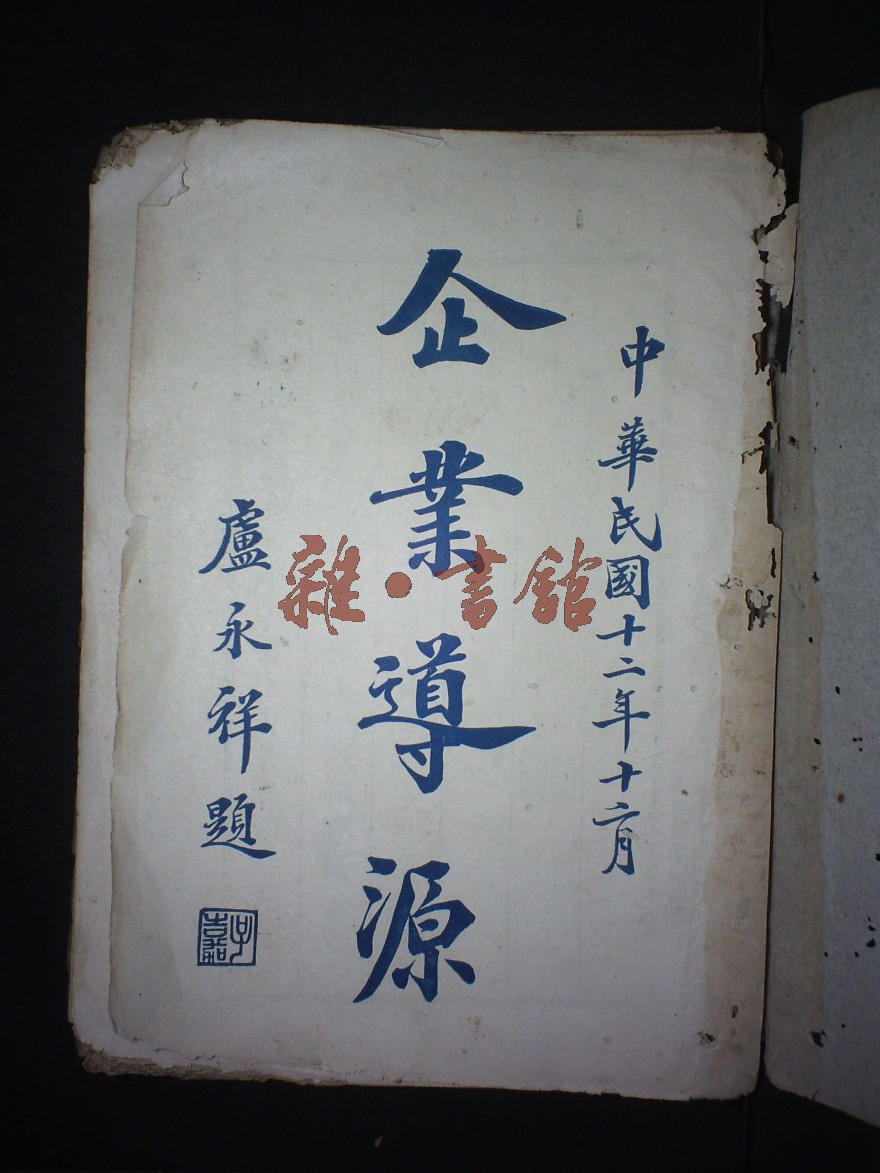 中華民國十二年十二月
企業導源
盧永祥題
子嘉
雜·書館